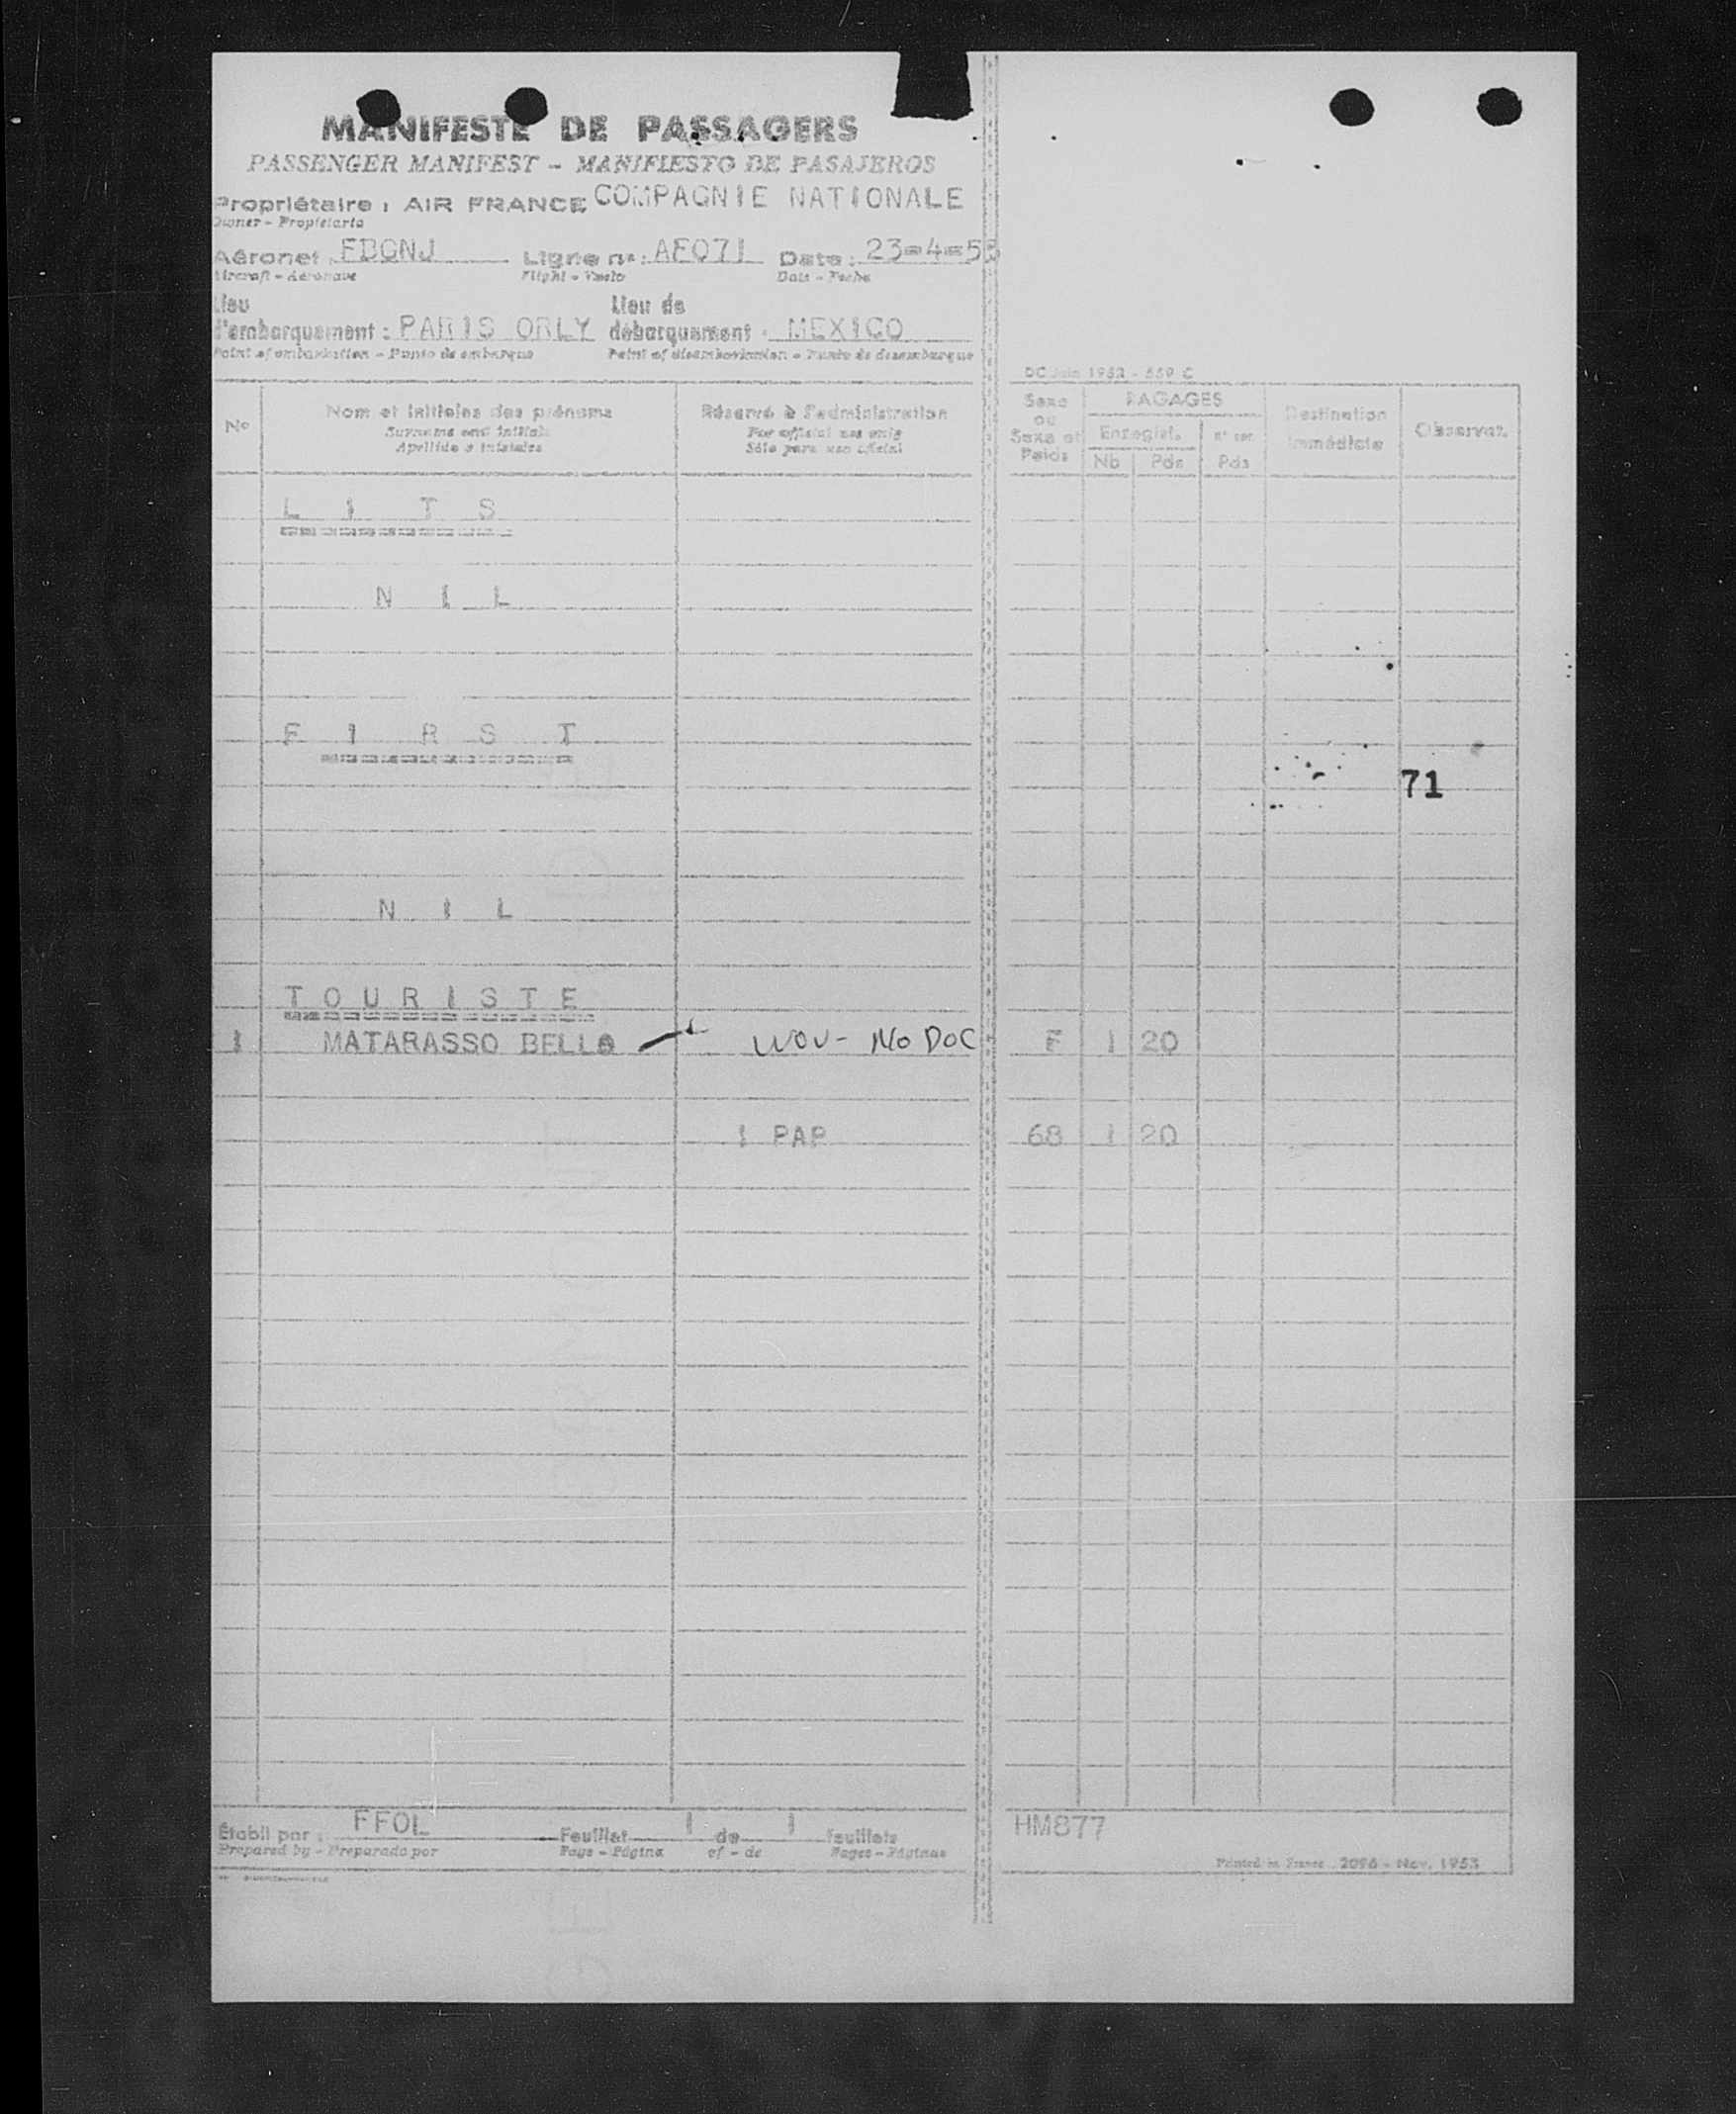 MANIFESTE DE PASSAGERS
PASSENGER MANIFEST - MANIFIESTO DE PASAJEROS
Propriétaire : AIR FRANCE COMPAGNIE NATIONALE
Owner - Propietario
Aéronef : FBGNJ Ligne no: AF071 Date : 23=4=55
Aircraft - Aeronave Flight - Vuelo Date - Fecha
Lieu Lieu de
d'embarquement : PARIS ORLY débarquement : MEXICO
Point of embarkation - Punto de embarque Point of disembarkation - Punto de desembarque
DC Juin 1952 - 559 C
No Nom et initiales des prénoms Réservé à l'administration Sexe ou Sexe et Poids BAGAGES Destination immédiate Observat.
Surname and initials For official use only Enregist.
Apellido e iniciales Sólo para uso oficial Nb Pds Pds
L I T S
N I L
F I R S T
71
N I L
T O U R I S T E
1 MATARASSO BELLA WOV- NO DOC F 1 20
1 PAP 68 1 20
Établi par : FFOL Feuillet 1 de 1 feuillets HM877
Prepared by - Preparado por Page - Página of - de Pages - Páginas
Printed in France 2096 - Nov. 1953